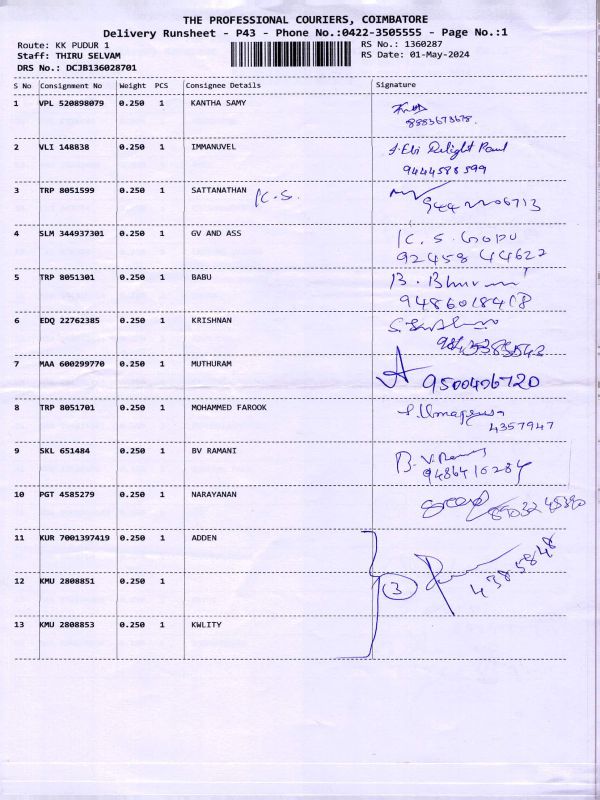 THE PROFESSIONAL COURIERS, COIMBATORE
Delivery Runsheet - P43 - Phone No.:0422-3505555 - Page No.:1
Route: KK PUDUR 1 RS No.: 1360287
Staff: THIRU SELVAM RS Date: 01-May-2024
DRS No.: DCJB136028701
S No Consignment No Weight PCS Consignee Details Signature
1 VPL 520898079 0.250 1 KANTHA SAMY
8883673678.
2 VLI 148838 0.250 1 IMMANUVEL J. Ebi
9444586599
3 TRP 8051599 0.250 1 SATTANATHAN K.S.
4 SLM 344937301 0.250 1 GV AND ASS K. S. Gopu
92458 44622
5 TRP 8051301 0.250 1 BABU B.
9486018418
6 EDQ 22762385 0.250 1 KRISHNAN
7 MAA 600299770 0.250 1 MUTHURAM
9500406720
8 TRP 8051701 0.250 1 MOHAMMED FAROOK
4357947
9 SKL 651484 0.250 1 BV RAMANI B. V.
9486416284
10 PGT 4585279 0.250 1 NARAYANAN
11 KUR 7001397419 0.250 1 ADDEN
12 KMU 2808851 0.250 1 3 4385848
13 KMU 2808853 0.250 1 KWLITY